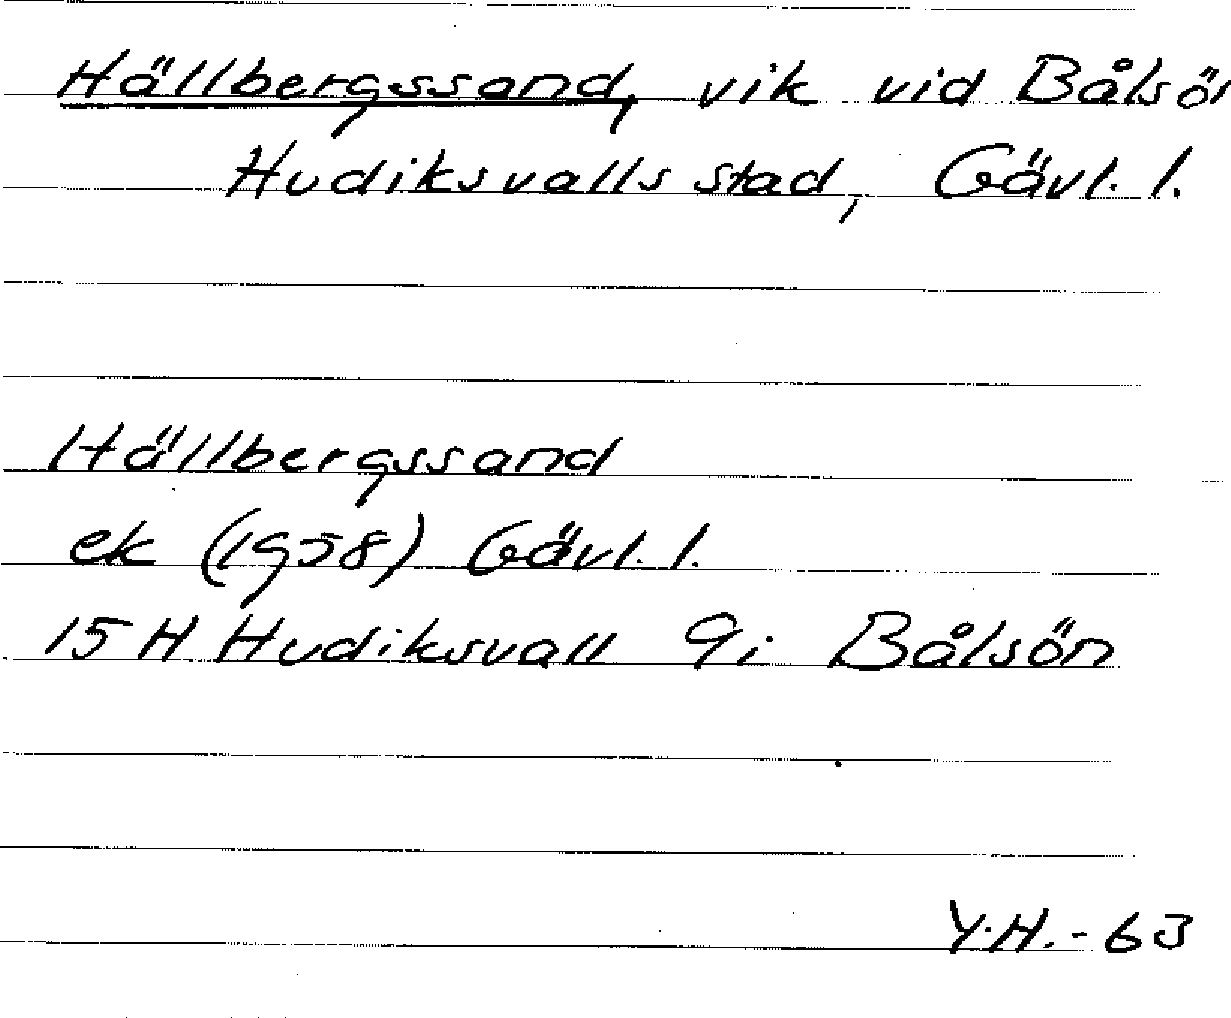 Hällbergssand, vik vid Bålsö
Hudiksvalls stad, Gävl. l.
Hällbergssand
ek (1958) Gävl. l.
15 H Hudiksvall 9i Bålsön
Y.H. - 63